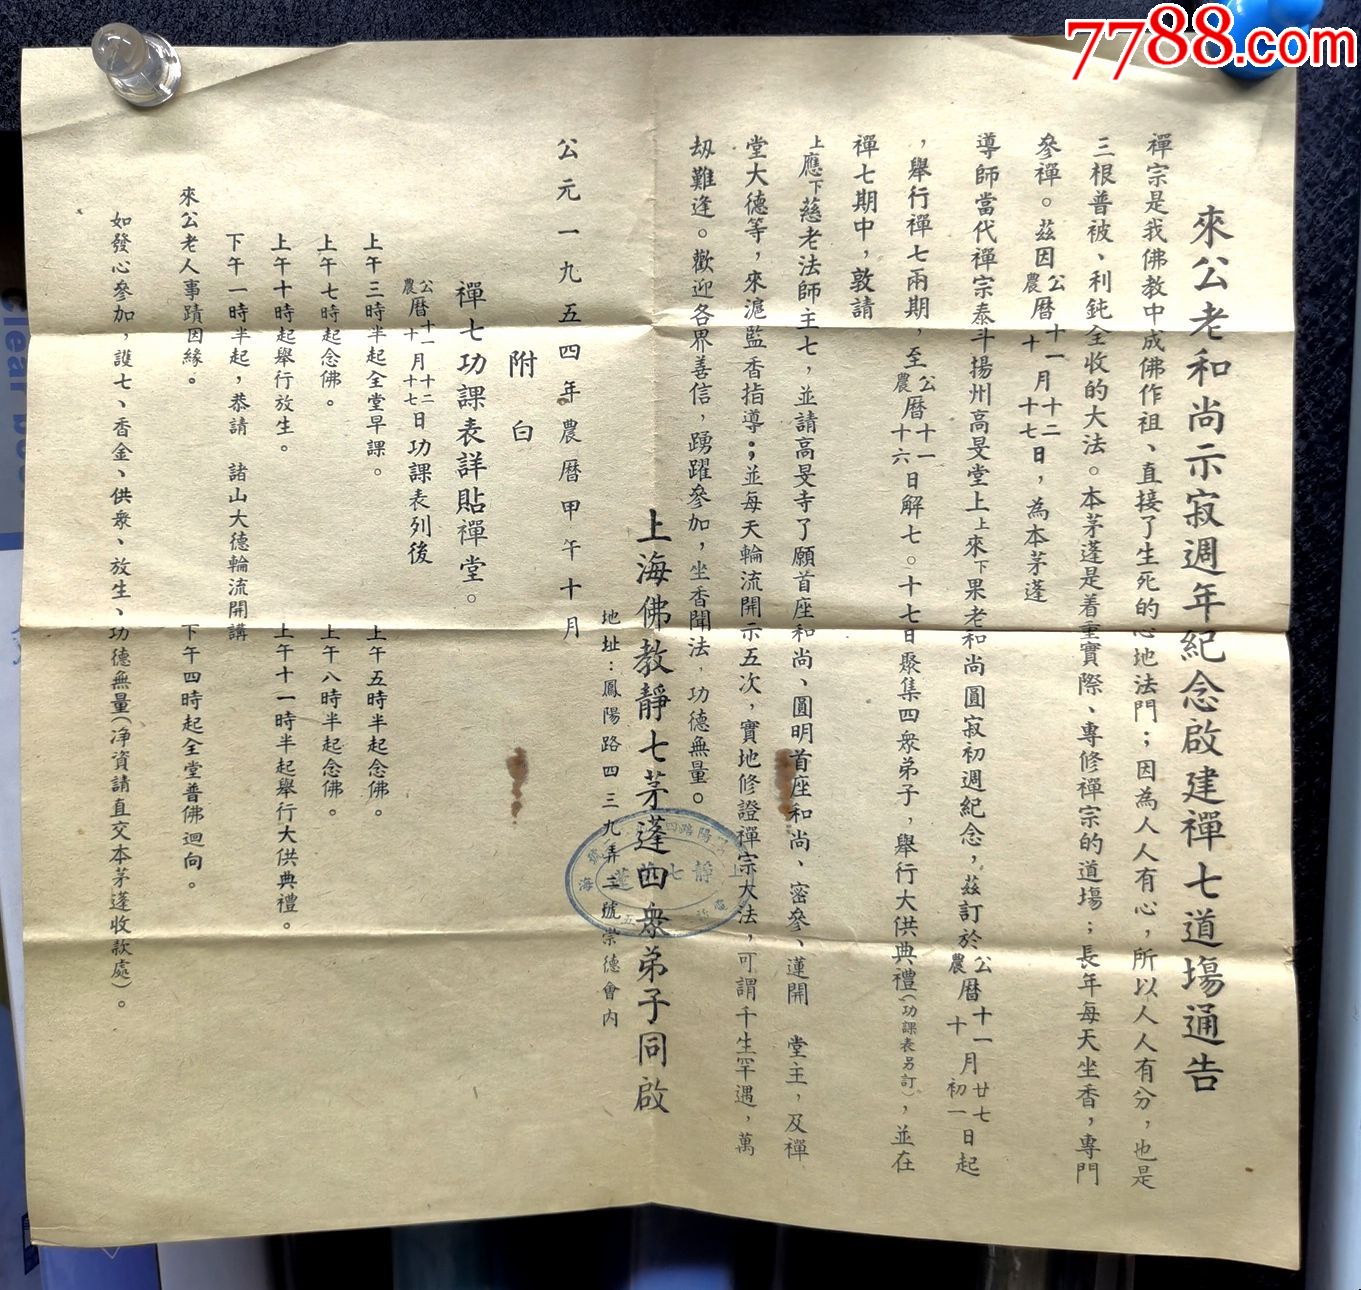 7788.com
來公老和尚示寂週年紀念啟建禪七道場通告
禪宗是我佛教中成佛作祖、直接了生死的心地法門；因為人人有心，所以人人有分，也是
三根普被、利鈍全收的大法。本茅蓬是着重實際、專修禪宗的道場；長年每天坐香，專門
參禪。茲因公曆十一月十二農曆十月十七日，為本茅蓬
導師當代禪宗泰斗揚州高旻堂上上來下果老和尚圓寂初週紀念，茲訂於公曆十一月廿七農曆十月初一日起
，舉行禪七兩期，至公曆十一農曆十六日解七。十七日聚集四衆弟子，舉行大供典禮（功課表另訂），並在
禪七期中，敦請
上應下慈老法師主七，並請高旻寺了願首座和尚、圓明首座和尚、密參、蓮開　堂主，及禪
堂大德等，來滬監香指導；並每天輪流開示五次，實地修證禪宗大法，可謂千生罕遇，萬
劫難逢。歡迎各界善信，踴躍參加，坐香聞法，功德無量。
上海佛教靜七茅蓬四衆弟子同啟
地址：鳳陽路四三九弄二號崇德會內
公元一九五四年農曆甲午十月
附白
禪七功課表詳貼禪堂。
公曆十一月十二農曆十月十七日功課表列後
上午三時半起全堂早課。　上午五時半起念佛。
上午七時起念佛。　上午八時半起念佛。
上午十時起舉行放生。　上午十一時半起舉行大供典禮。
下午一時半起，恭請　諸山大德輪流開講
來公老人事蹟因緣。　下午四時起全堂普佛迴向。
如發心參加，護七、香金、供衆、放生、功德無量（淨資請直交本茅蓬收款處）。